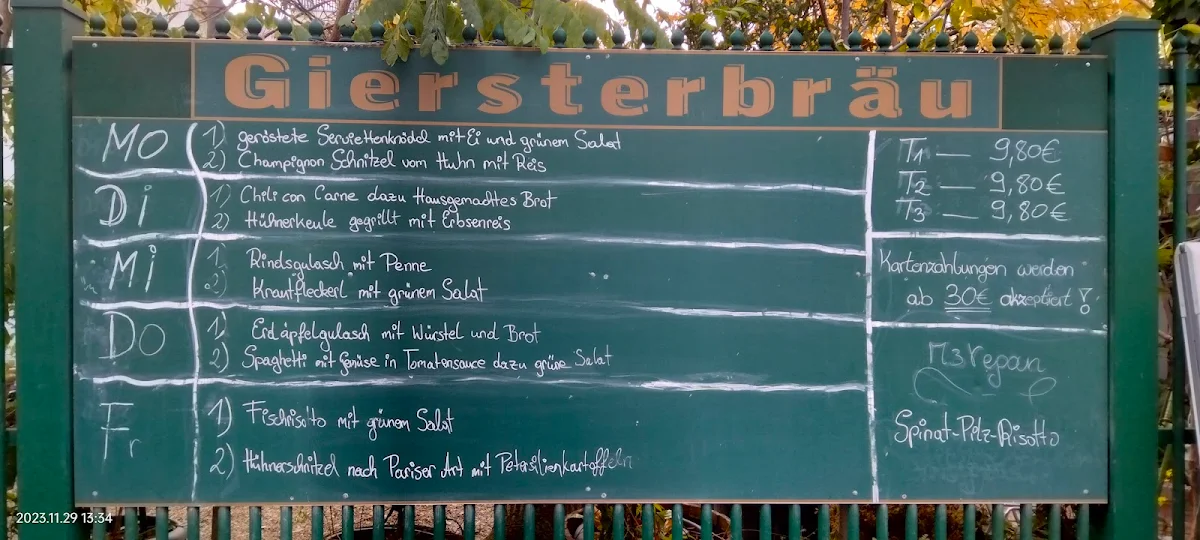 Giersterbräu
MO
1) geröstete Serviettenknödel mit Ei und grünem Salat
2) Champignon Schnitzel vom Huhn mit Reis
Di
1) Chili con Carne dazu Hausgemachtes Brot
2) Hühnerkeule gegrillt mit Erbsenreis
Mi
1. Rindsgulasch mit Penne
2) Krautfleckerl mit grünem Salat
Do
1) Erdäpfelgulasch mit Würstel und Brot
2) Spaghetti mit Gemüse in Tomatensauce dazu grüne Salat
Fr
1) Fischrisoto mit grünem Salat
2) Hühnerschnitzel nach Pariser Art mit Petersilienkartoffeln
T1 — 9,80€
T2 — 9,80€
T3 — 9,80€
Kartenzahlungen werden
ab 30€ akzeptiert!
M3 Vegan
Spinat-Pilz-Risotto
2023.11.29 13:34